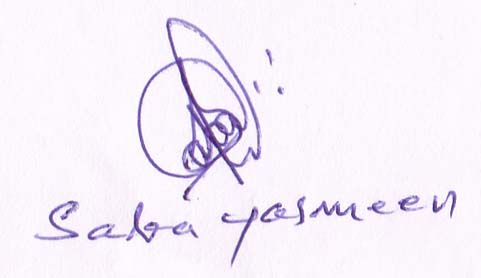 Saba yasmeen